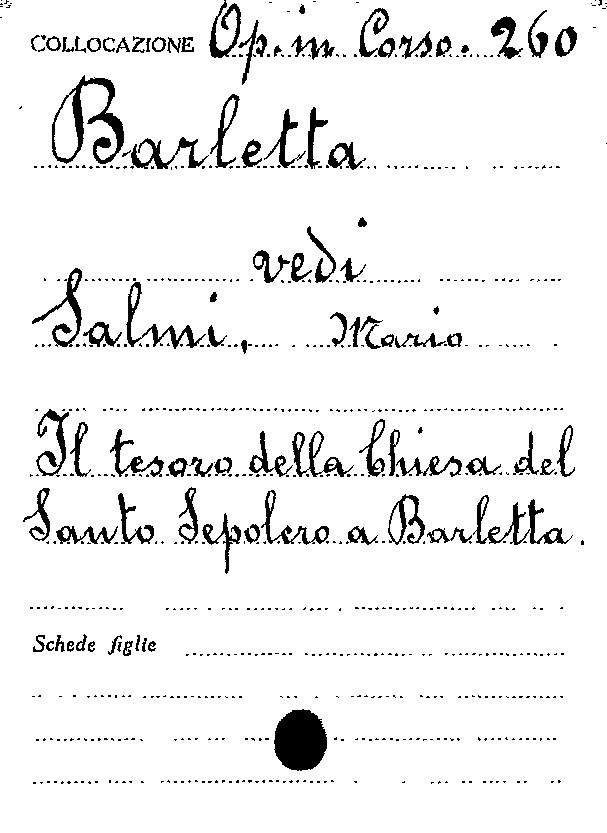 COLLOCAZIONE Op. in Corso. 260
Barletta
vedi
Salmi, Mario
Il tesoro della Chiesa del
Santo Sepolcro a Barletta.
Schede figlie